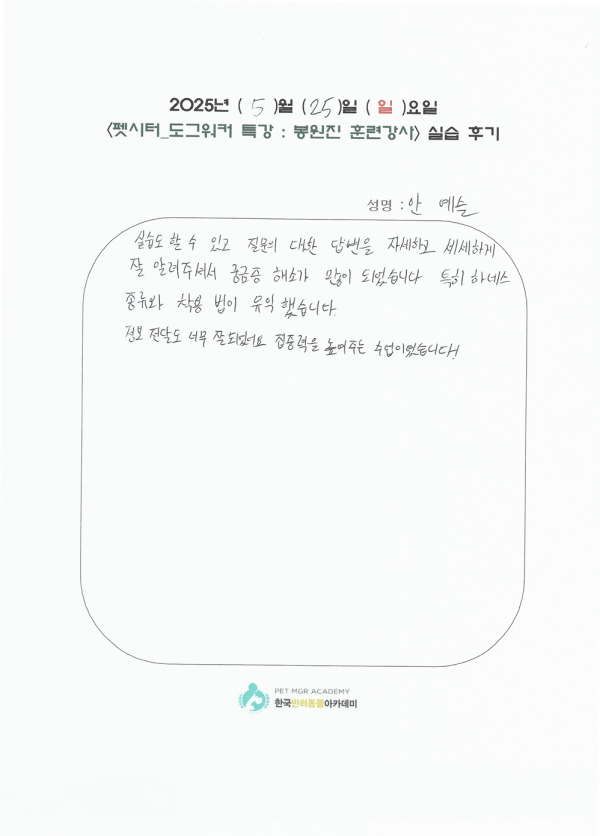 2025년 ( 5 )월 ( 25 )일 ( 일 )요일
<펫시터_도그워커 특강 : 봉원진 훈련강사> 실습 후기
성명 : 안 예슬
실습도 할 수 있고 질문의 대한 답변을 자세하고 세세하게
잘 알려주셔서 궁금증 해소가 많이 되었습니다 특히 하네스
종류와 착용 법이 유익 했습니다.
정보 전달도 너무 잘되었어요 집중력을 높여주는 수업이었습니다!
PET MGR ACADEMY
한국반려동물아카데미